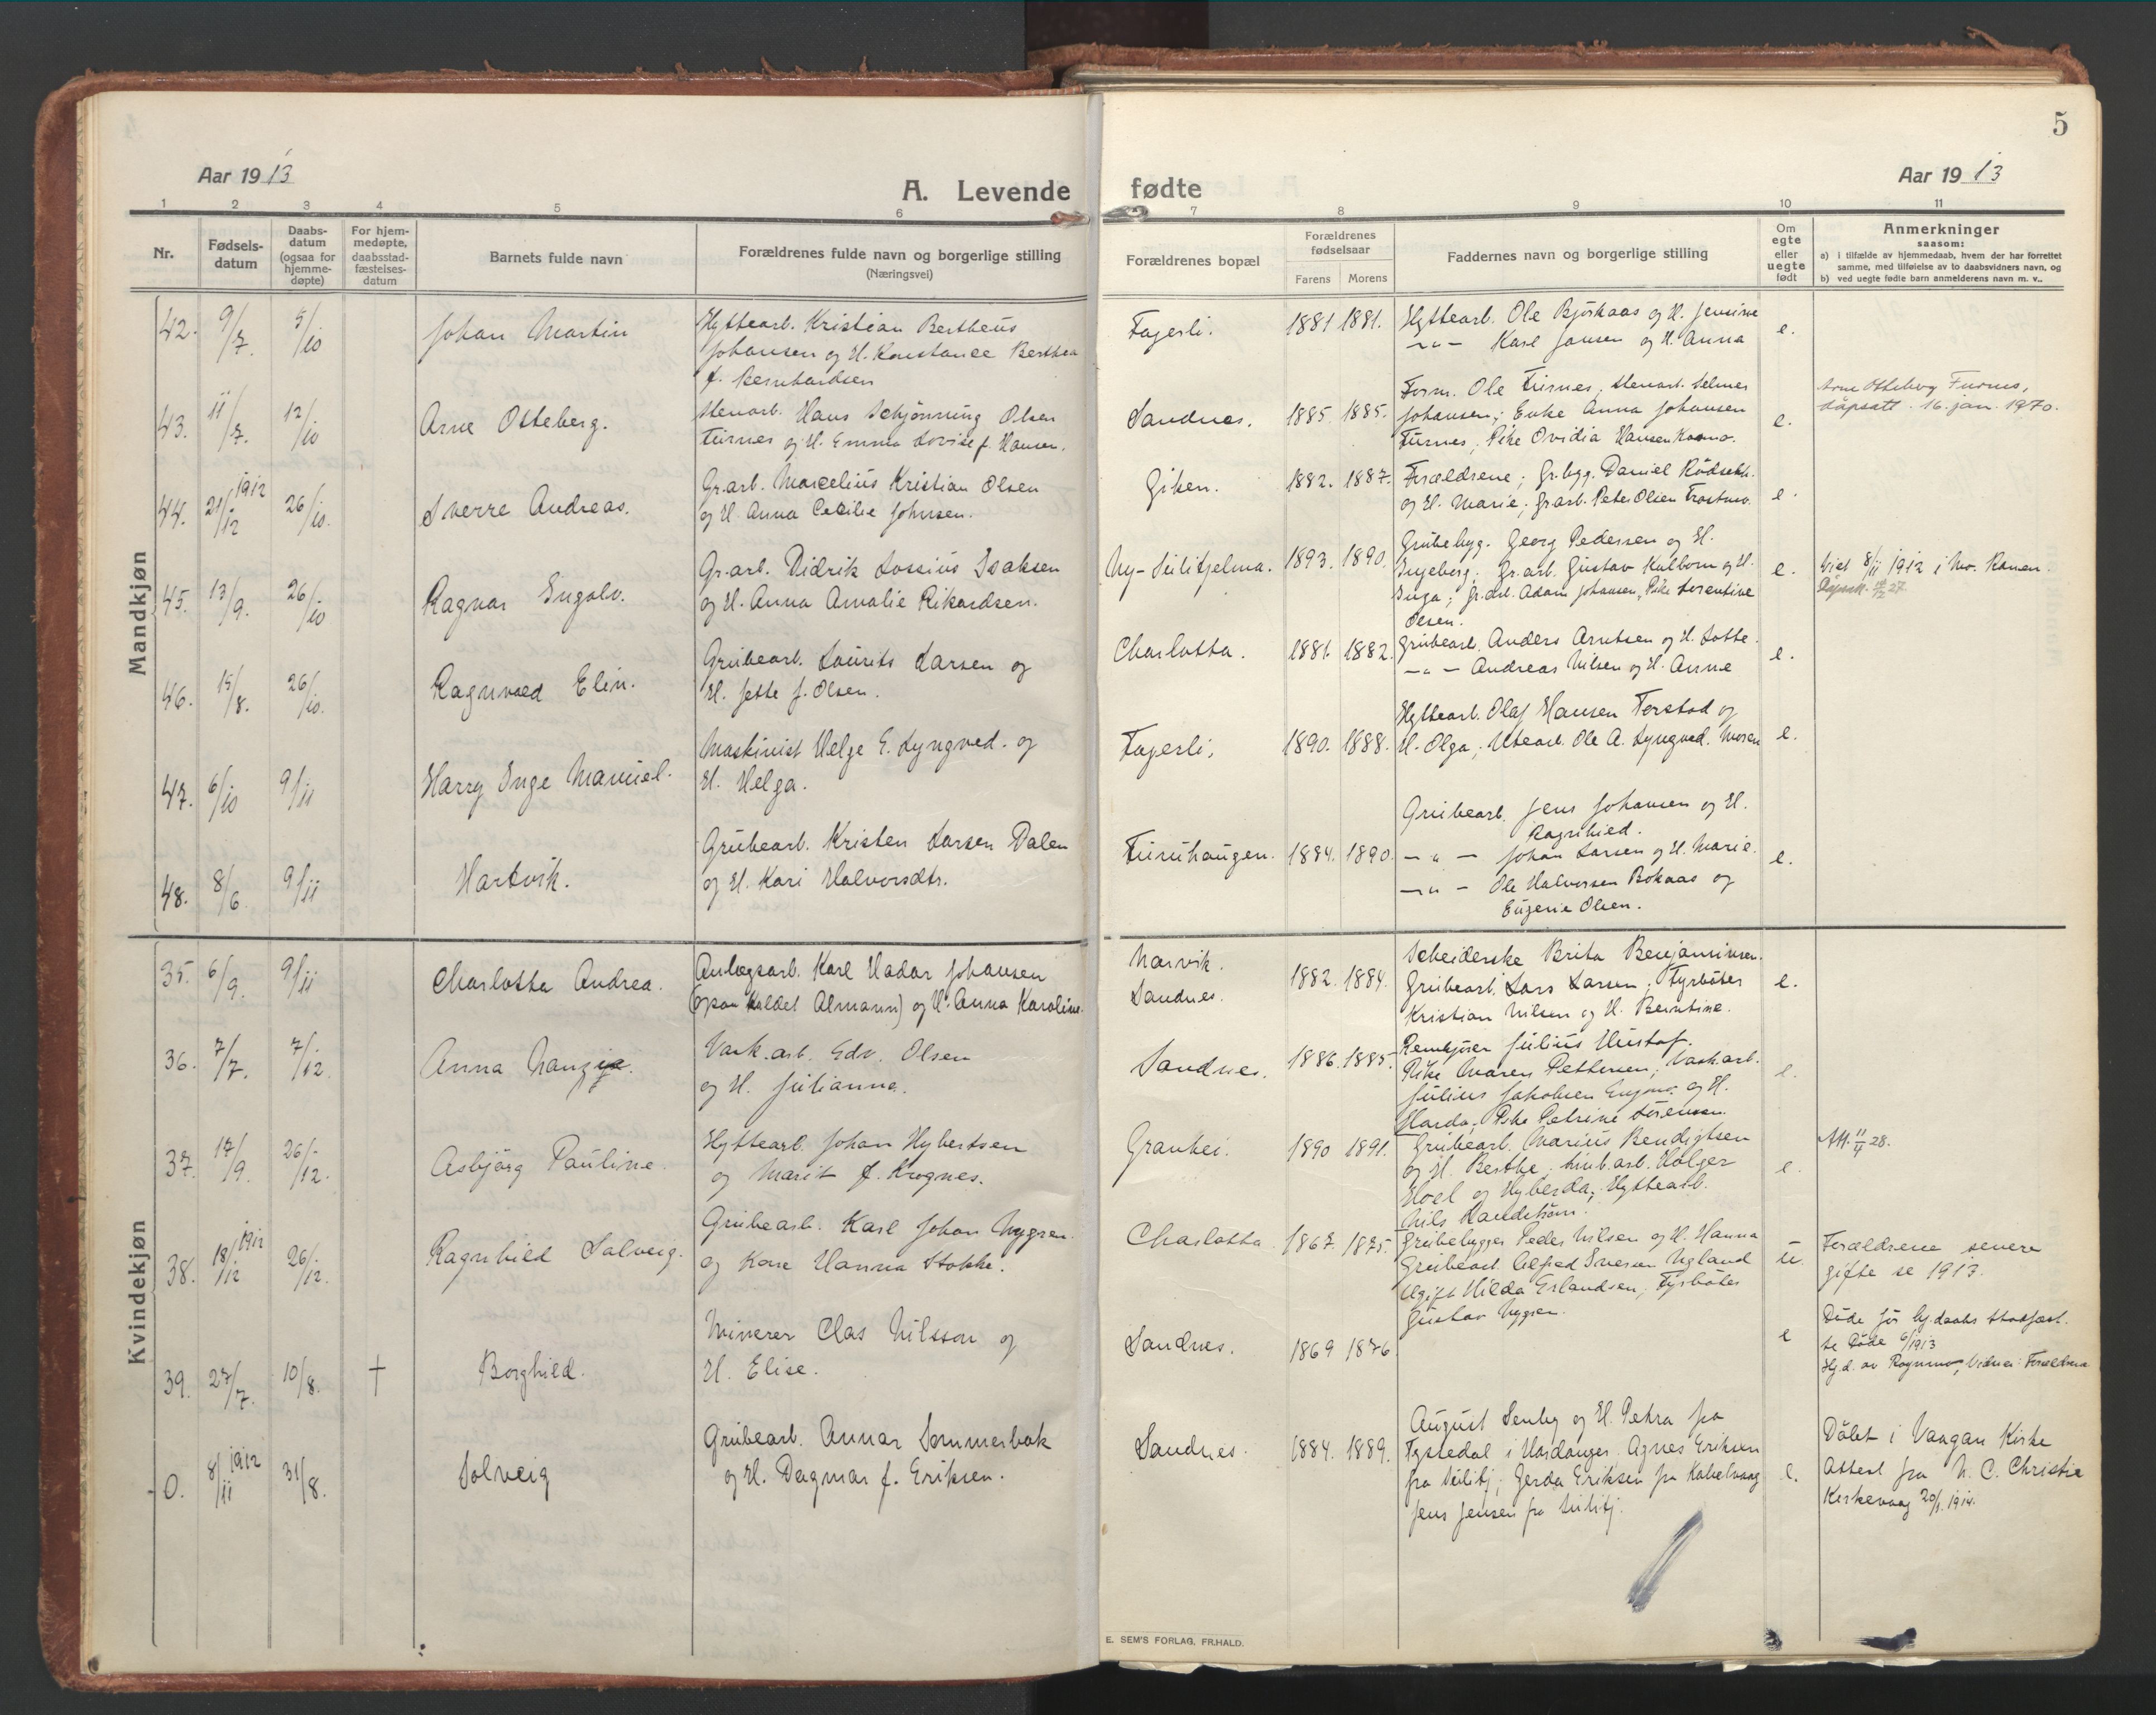 5
Aar 1913
A. Levende fødte
Aar 1913
1 2 3 4 5 6 7 8 9 10 11
Nr.
Fødsels-
datum
Daabs-
datum
(ogsaa for
hjemme-
døpte)
For hjem-
medøpte,
daabsstad-
fæstelses-
datum
Barnets fulde navn
Forældrenes fulde navn og borgerlige stilling
(Næringsvei)
Forældrenes bopæl
Forældrenes
fødselsaar
Farens Morens
Faddernes navn og borgerlige stilling
Om
egte
eller
uegte
født
Anmerkninger
saasom:
a) i tilfælde av hjemmedaab, hvem der har forrettet
samme, med tilføielse av to daabsvidners navn, og
b) ved uegte fødte barn anmelderens navn m. v..
Mandkjøn
42. 9/7. 5/10 Johan Martin
Hyttearb. Kristian Bertheus
Johansen og H. Konstance Berthea
f. Bernhardsen
Fagerli. 1881 1881.
Hyttearb. Ole Bjørkaas og H. Jensine
-"- Karl Jansen og H. Anna
e.
43. 11/7. 12/10 Arne Otteberg.
Stenarb. Hans Schjønning Olsen
Furnes og H. Emma Lovise f. Hansen.
Sandnes. 1885. 1885.
Form. Ole Furnes, Stenarb. Selmer
Johansen; Enke Anna Johansen
Furnes, Pike Ovidia Hansen
e.
Arne Otteberg Furnes,
dåpsatt. 16. jan. 1970.
44. 21/12 1912 26/10. Sverre Andreas.
Gr.arb. Marcelius Kristian Olsen
og H. Anna Cecilie Johnsen.
Giken. 1882. 1887.
Forældrene; Gr.byg. Daniel
og H. Marie; Gr.arb. Peter Olsen
e.
45. 13/9. 26/10 Ragnar Ingolv.
Gr.arb. Didrik Lossius Isaksen
og H. Anna Amalie Rikardsen.
Ny-Sulitjelma. 1893. 1890.
Grubebyg. Georg Pedersen og H.
Ingeborg; Gr.arb. Gustav Kalborn og H.
Inga; Gr.arb. Adam Johansen, Pike Lorentine
Olsen.
e.
Viet 8/11 1912 i No. Ranen.
46. 15/8. 26/10. Ragnvald Elin.
Grubearb. Laurits Larsen og
H. Jette f. Olsen.
Charlotta. 1881. 1882.
Grubearb. Anders Arntsen og H. Lotte.
-"- Andreas Nilsen og H. Anne
e.
47. 6/10 9/11 Harry Inge Manuel.
Maskinist Helge E. Lyngved. og
H. Helga.
Fagerli. 1890. 1888.
Hyttearb. Olaf Hansen Forstad og
H. Olga; Utearb. Ole A. Lyngved. Moren
e.
48. 8/6. 9/11 Hartvik.
Grubearb. Kristen Larsen Dalen
og H. Kari Halvorsdtr.
Furuhaugen. 1884. 1890.
Grubearb. Jens Johansen og H.
Ragnhild.
-"- Johan Larsen og H. Marie.
-"- Ole Halvorsen Bokaas og
Eugenie Olsen.
e.
Kvindekjøn
35. 6/9. 9/11 Charlotta Andrea.
Anlægsarb. Karl Hadar Johansen
(ogsaa kaldet Almann) og H. Anna Karoline.
Narvik.
Sandnes.
1882. 1884.
Scheiderske Brita Benjaminsen.
Grubearb. Lars Larsen; Fyrbøter
Kristian Nilsen og H. Berntine.
e.
36. 7/7. 7/12 Anna
Vask.arb. Edv. Olsen
og H. Julianna.
Sandnes. 1886. 1885.
Julius Hustof.
Pike Maren Pettersen; Vaskarb.
Julius Jakobsen og H.
Harda, Pike Petrine Sørensen.
e.
37. 17/9. 26/12. Asbjørg Pauline.
Hyttearb. Johan Hybertsen
og Marit f. Krognes.
Granhei. 1890 1891.
Grubearb. Marius Bendigtsen
og H. Berthe; Linb.arb. Holger
Hoel og Hyberda; Hyttearb.
Nils
e.
Att. 11/4 28.
38. 18/12 1912 26/12. Ragnhild Solveig.
Grubearb. Karl Johan Nygren.
og Kone Hanna Stokke.
Charlotta 1867. 1875.
Grubebygger Peder Nilsen og H. Hanna
Grubearb. Alfred Iversen Ugland
Ugift Hilda Erlandsen; Fyrbøter
Gustav Nygren.
u.
Forældrene senere
gifte se 1913.
39. 27/7. 10/8. † Borghild.
Minerer Clas Nilsson og
H. Elise.
Sandnes. 1869 1876.
e
Døde før hj.daabs stadfæst.
se Døde 6/1913
Hj.d. av Rognmo, Vidner: Forældrene
0. 8/11 1912 31/8. Solveig
Grubearb. Annar Sommerbak
og H. Dagmar f. Eriksen.
Sandnes. 1884. 1889.
August Senby og H. Petra fra
Tyssedal i Hardanger. Agnes Eriksen
fra Sulitj; Gerda Eriksen fra Kabelvaag
Jens Jensen fra Sulitj.
e.
Døbt i Vaagan Kirke
Attest fra N. C. Christie
Kirkevaag 20/1. 1914.
E. SEM'S FORLAG, FR.HALD.